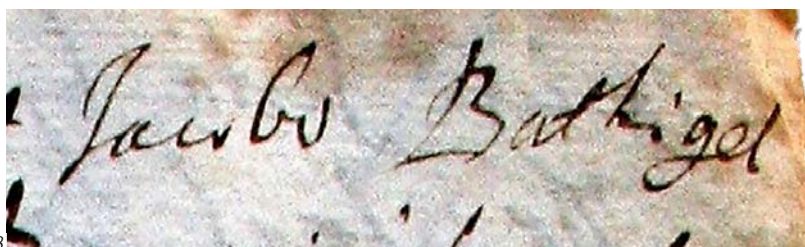 Jacobo Bathigel